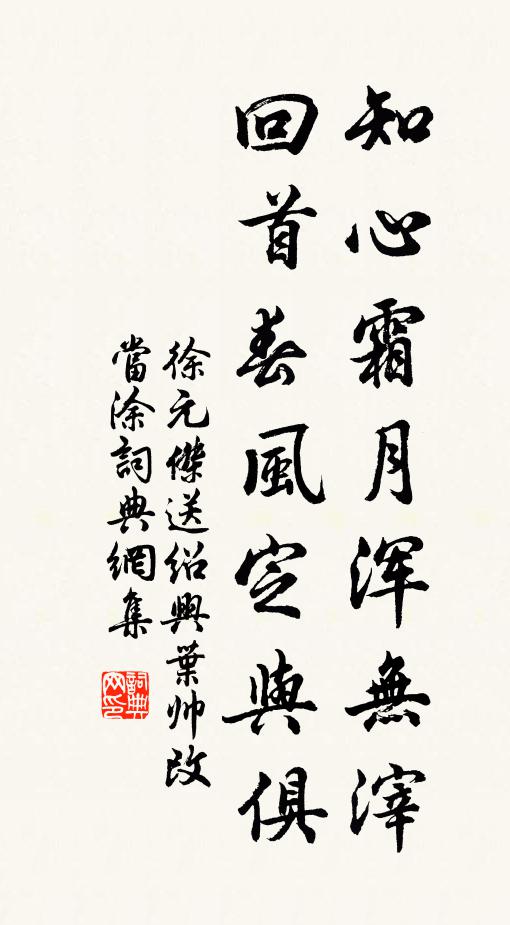 知心霜月浑無滓
回首春風定與俱
徐元傑送绍興葉帅改
當涂詞典網集
詞典网印